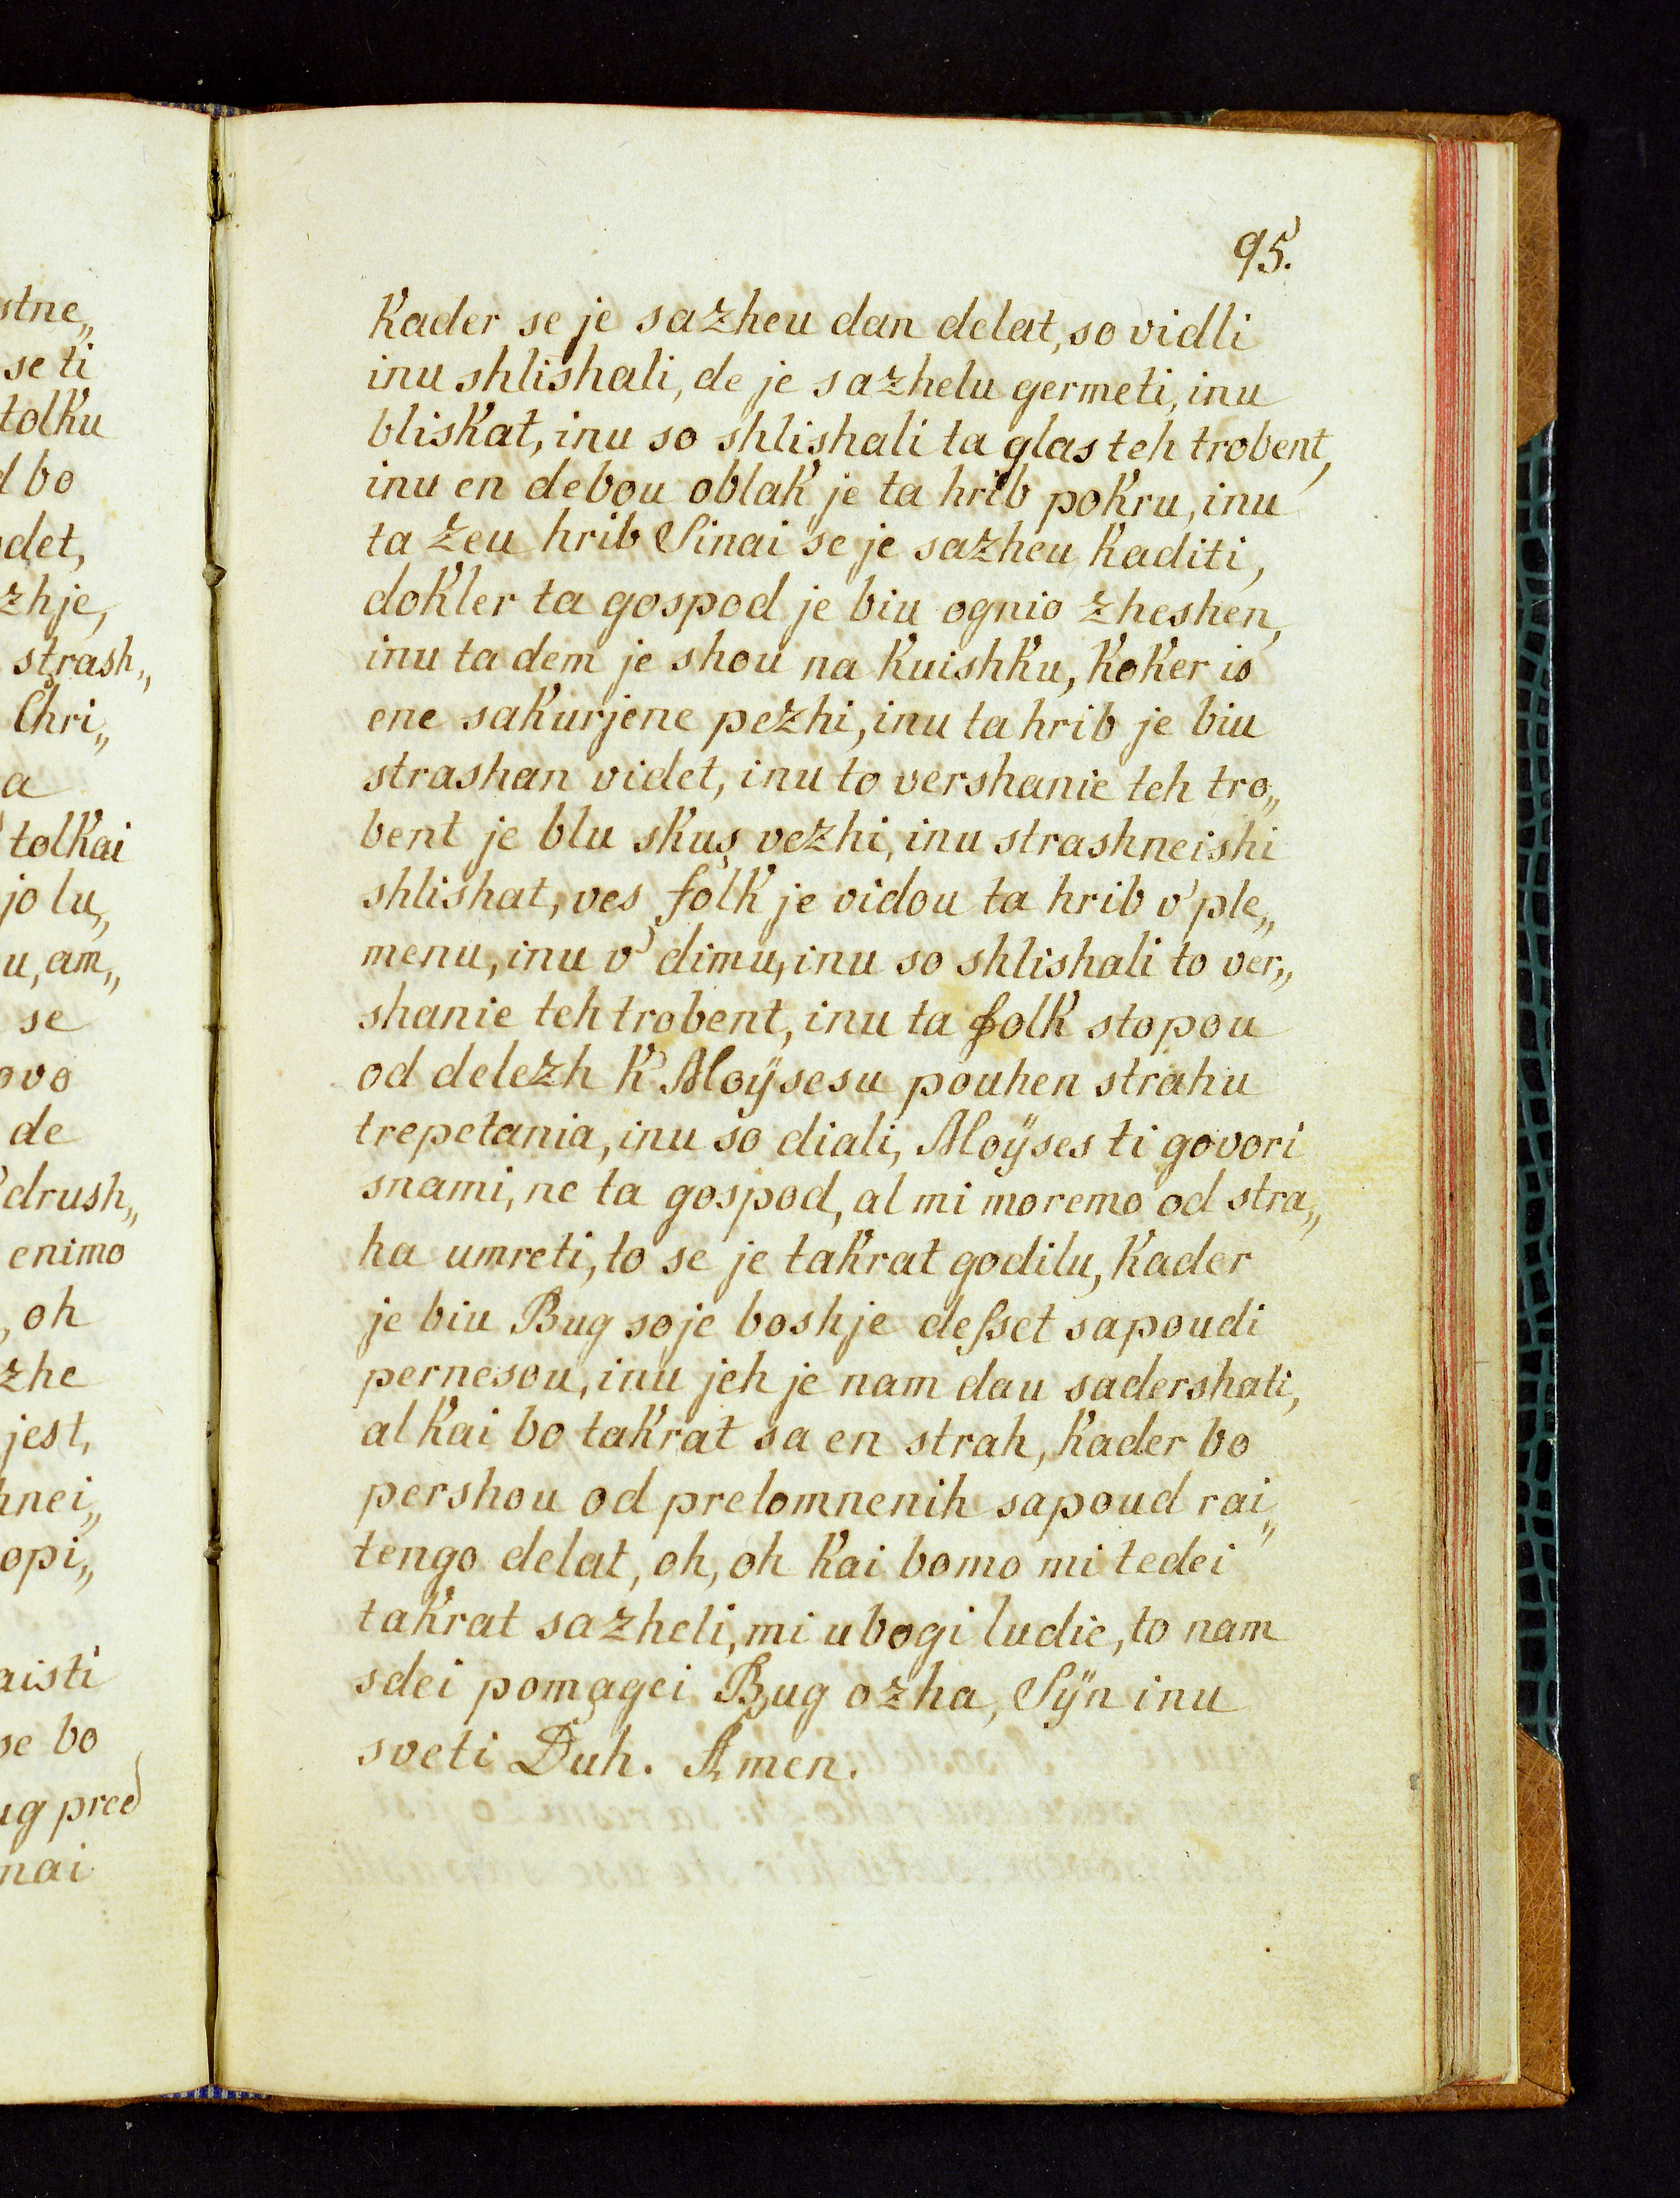 stne„
se ti
tolku
d bo
odet,
zhje,
strash„
Chri„
a
tolkai
jo lu„
u, am„
se
ovo
de
drush„
enimo
, oh
zhe
jest,
hnei„
opi„
aisti
se bo
ug pred
nai
95.
Kader se je sazheu dan delat, so vidli
inu shlishali, de je sazhelu germeti, inu
bliskat, inu so shlishali ta glas teh trobent,
inu en debou oblak je ta hrib pokru, inu
ta zeu hrib Sinai se je sazheu kaditi,
dokler ta gospod je biu ognio zheshen,
inu ta dem je shou na kuishku, koker is
ene sakurjene pezhi, inu ta hrib je biu
strashan videt, inu to vershanie teh tro„
bent je blu skus vezhi, inu strashneishi
shlishat, ves folk je vidou ta hrib v' ple„
menu, inu v' dimu, inu so shlishali to ver„
shanie teh trobent, inu ta folk stopou
od delezh k' Moÿsesu pouhen strahu
trepetania, inu so diali, Moÿses ti govori
snami, ne ta gospod, al mi moremo od stra„
ha umreti, to se je takrat godilu, kader
je biu Bug soje boshje deſset sapoudi
pernesou, inu jeh je nam dau sadershati,
al kai bo takrat sa en strah, kader bo
pershou od prelomnenih sapoud rai„
tengo delat, oh, oh kai bomo mi tedei
takrat sazheli, mi ubogi ludie, to nam
sdei pomagei Bug ozha, Sÿn inu
sveti Duh. Amen.